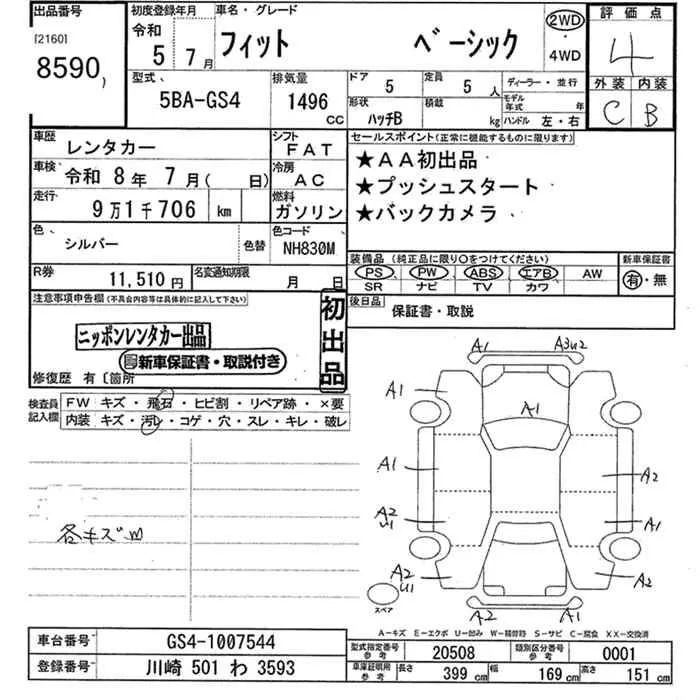 出品番号
[2160]
8590
初度登録年月
令和 5年 7月
車名・グレード
フィット ベーシック
2WD
・
4WD
評価点
4
外装 内装
C B
型式
5BA-GS4
排気量
1496 CC
ドア 5
定員 5人
形状 ハッチB
積載 kg
ディーラー・並行
モデル年式 年
ハンドル 左・右
車歴 レンタカー
シフト FAT
車検 令和 8年 7月( 日)
冷房 AC
走行 9万1千706 km
燃料 ガソリン
色 シルバー
色替
色コード NH830M
R券 11,510円
名変通知期限 月 日
セールスポイント(正常に機能するものに限ります)
★AA初出品
★プッシュスタート
★バックカメラ
装備品(純正品に限り〇をつけてください)
PS PW ABS エアB AW
SR ナビ TV カワ
新車保証書
有・無
後日品
保証書・取説
注意事項申告欄(不具合内容等は具体的に記入して下さい)
ニッポンレンタカー出品
新車保証書・取説付き
初出品
修復歴 有〔箇所
検査員記入欄
FW キズ・飛石・ヒビ割・リペア跡・×要
内装 キズ・汚レ・コゲ・穴・スレ・キレ・破レ
各キズm
A1 A3U2
A1
A1
A1 A2
A2
U1
A1
A2
U1
A2
A2 A1
スペア
A-キズ E-エクボ U-凹み W-補修跡 S-サビ C-腐食 XX-交換済
車台番号 GS4-1007544
登録番号 川崎 501 わ 3593
型式指定番号 参考 20508
類別区分番号 参考 0001
車庫証明用 参考 長さ 399 cm 幅 169 cm 高さ 151 cm